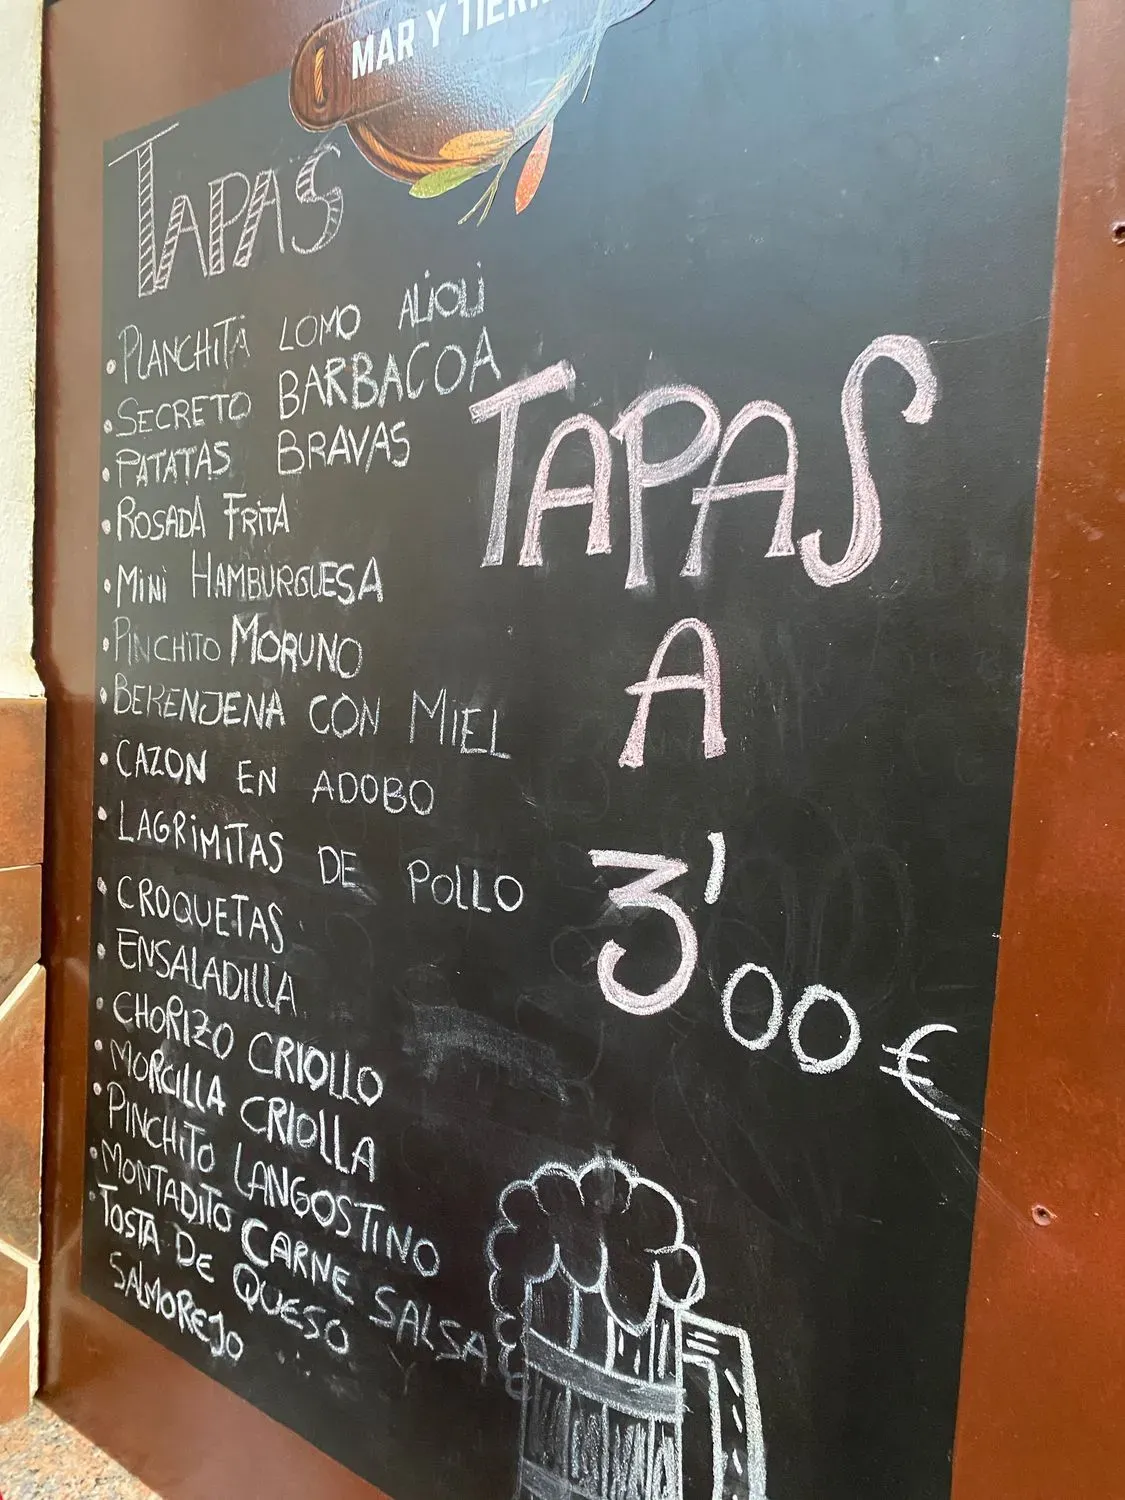 MAR Y TIERR
TAPAS
• PLANCHITA LOMO ALIOLI
• SECRETO BARBACOA
• PATATAS BRAVAS
• ROSADA FRITA
• MINI HAMBURGUESA
• PINCHITO MORUNO
• BERENJENA CON MIEL
• CAZON EN ADOBO
• LAGRIMITAS DE POLLO
• CROQUETAS
• ENSALADILLA
• CHORIZO CRIOLLO
• MORCILLA CRIOLLA
• PINCHITO LANGOSTINO
• MONTADITO CARNE SALSA
• TOSTA DE QUESO Y
SALMOREJO
TAPAS
A
3'00€